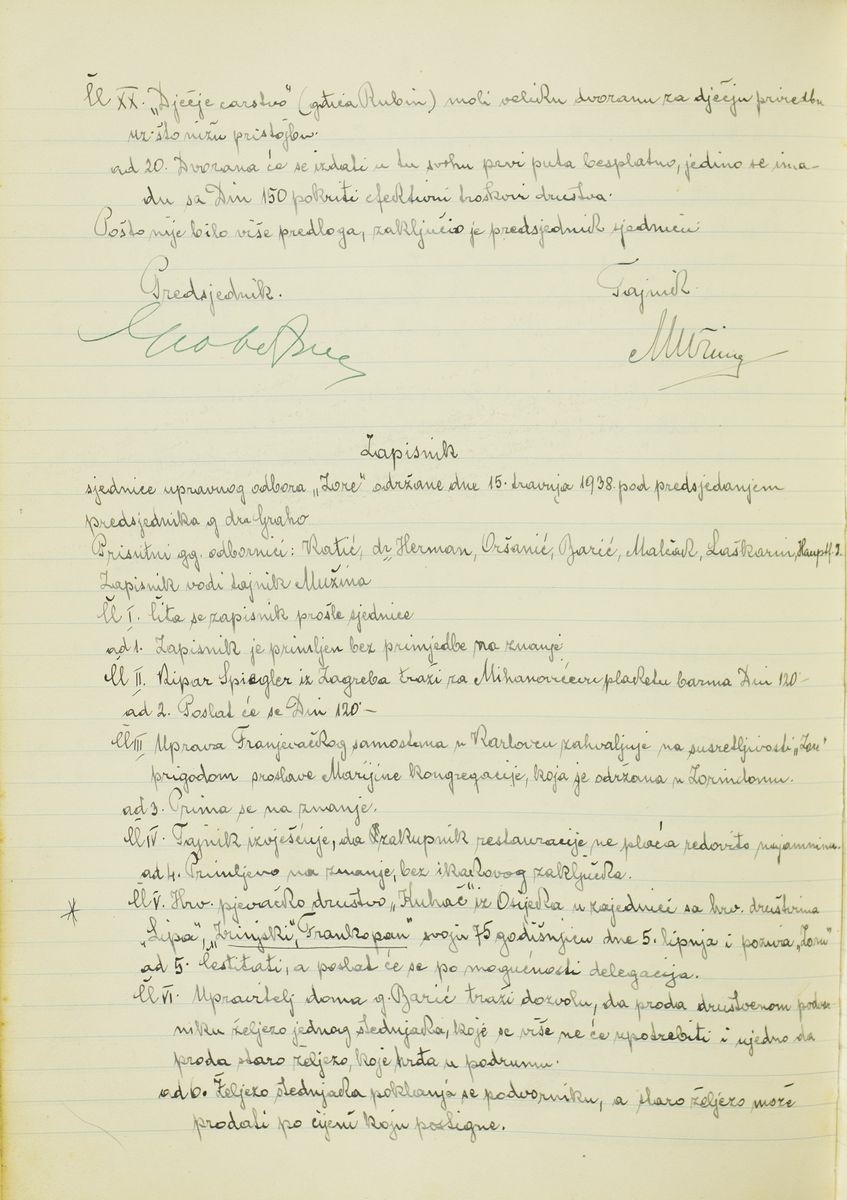 Čl XX. „Dječje carstvo" (gđica Rubin) moli veliku dvoranu za dječju priredbu
uz što nižu pristojbu.
ad 20. Dvorana će se izdati u tu svrhu prvi puta besplatno, jedino se ima-
du sa Din 150 pokriti efektivni troškovi društva.
Pošto nije bilo više predloga, zaključio je predsjednik sjednicu
Predsjednik. Tajnik
Zapisnik
sjednice upravnog odbora „Zore" održane dne 15. travnja 1938. pod predsjedanjem
predsjednika g dra Graho
Prisutni gg. odbornici: Katić, dr Herman, Oršanić, Barić, Malčak, Laškarin, Hauptf. J.
Zapisnik vodi tajnik Mužina
Čl I. Čita se zapisnik prošle sjednice
ad 1. Zapisnik je primljen bez primjedbe na znanje
Čl II. Kipar Spiegler iz Zagreba traži za Mihanovićevu plaketu barma Din 120-
ad 2. Poslat će se Din 120-
Čl III Uprava Franjevačkog samostana u Karlovcu zahvaljuje na susretljivosti „Zore"
prigodom proslave Marijine kongregacije, koja je održana u Zorindomu.
ad 3. Prima se na znanje.
Čl IV. Tajnik izvješćuje, da zakupnik restauracije ne plaća redovito najamninu.
ad 4. Primljeno na znanje, bez ikakovog zaključka.
Čl V. Hrv. pjevačko društvo „Kuhač" iz Osijeka u zajednici sa hrv. društvima
„Lipa", „Zrinjski", „Frankopan" svoju 75 godišnjicu dne 5. lipnja i poziva „Zoru"
ad 5. Čestitati, a poslat će se po mogućnosti delegacija.
Čl VI. Upravitelj doma g. Barić traži dozvolu, da proda društvenom podvor-
niku željezo jednog štednjaka, koje se više ne će upotrebiti i ujedno da
proda staro željezo, koje hrđa u podrumu.
ad 6. Željezo štednjaka poklanja se podvorniku, a staro željezo može
prodati po cijeni koju postigne.